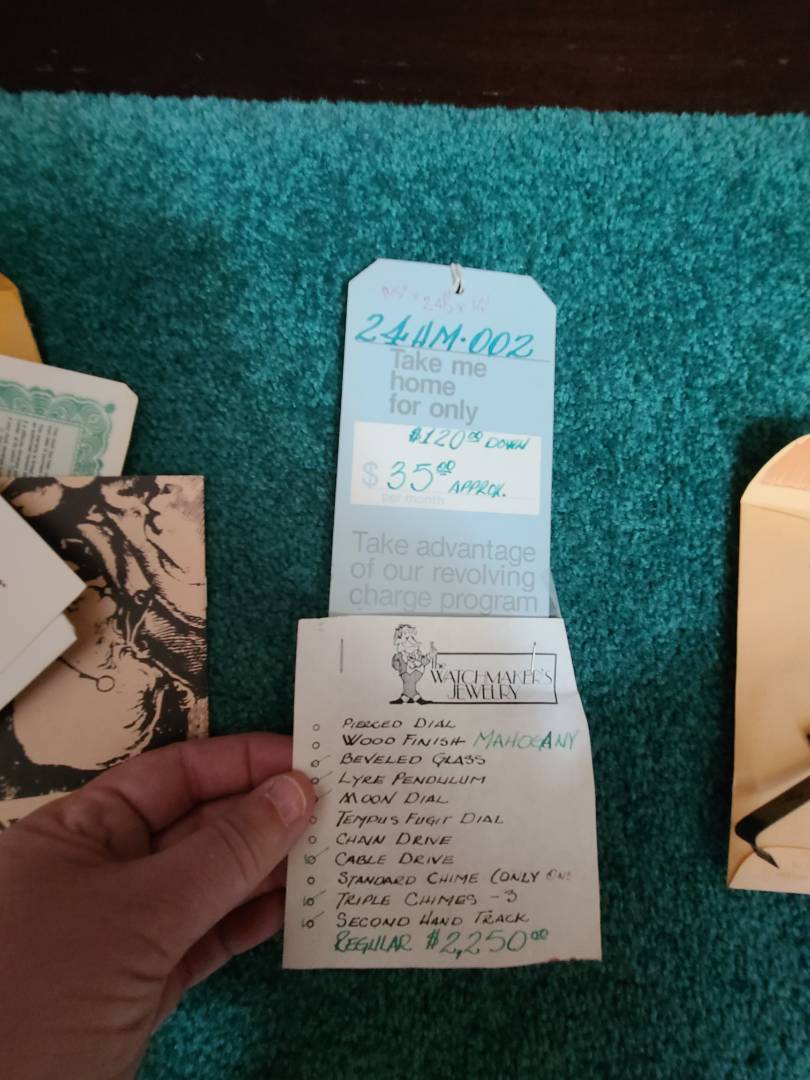 24HM-002
Take me
home
for only
$120⁰⁰ DOWN
$ 35⁰⁰ APPROX.
per month
Take advantage
of our revolving
charge program
The
WATCHMAKER'S
JEWELRY
PIERCED DIAL
WOOD FINISH MAHOGANY
BEVELED GLASS
LYRE PENDULUM
MOON DIAL
TEMPUS FUGIT DIAL
CHAIN DRIVE
CABLE DRIVE
STANDARD CHIME (ONLY ONE
TRIPLE CHIMES - 3
SECOND HAND TRACK
REGULAR $2,250⁰⁰